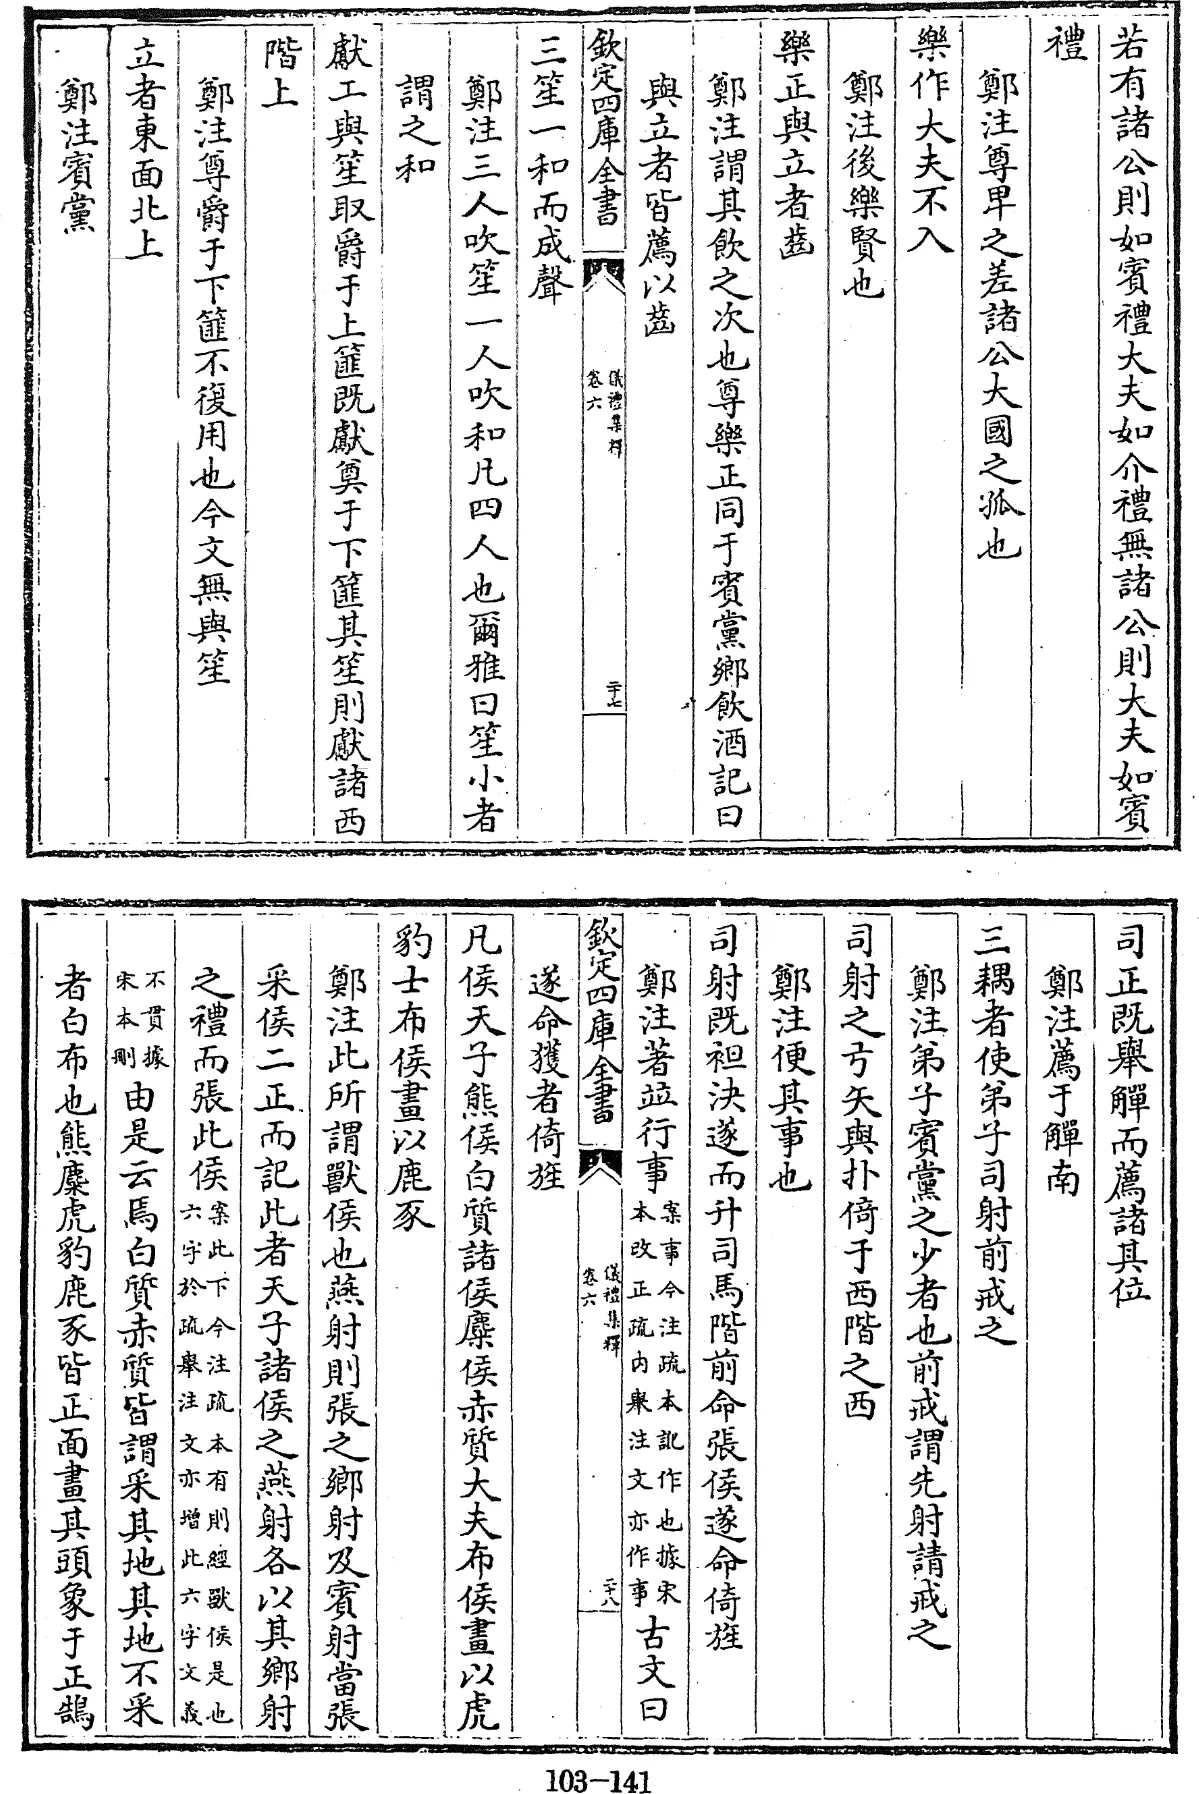 若有諸公則如賓禮大夫如介禮無諸公則大夫如賓
禮
鄭注尊卑之差諸公大國之孤也
樂作大夫不入
鄭注後樂賢也
樂正與立者齒
鄭注謂其飲之次也尊樂正同于賓黨鄉飲酒記曰
與立者皆薦以齒
欽定四庫全書
儀禮集釋
卷六
二十七
三笙一和而成聲
鄭注三人吹笙一人吹和凡四人也爾雅曰笙小者
謂之和
獻工與笙取爵于上篚既獻奠于下篚其笙則獻諸西
階上
鄭注尊爵于下篚不復用也今文無與笙
立者東面北上
鄭注賓黨
司正既舉觶而薦諸其位
鄭注薦于觶南
三耦者使弟子司射前戒之
鄭注弟子賓黨之少者也前戒謂先射請戒之
司射之弓矢與扑倚于西階之西
鄭注便其事也
司射既袒決遂而升司馬階前命張侯遂命倚旌
鄭注著竝行事案事今注疏本訛作也據宋本改正疏内舉注文亦作事古文曰
欽定四庫全書
儀禮集釋
卷六
二十八
遂命獲者倚旌
凡侯天子熊侯白質諸侯麋侯赤質大夫布侯畫以虎
豹士布侯畫以鹿豕
鄭注此所謂獸侯也燕射則張之鄉射及賓射當張
采侯二正而記此者天子諸侯之燕射各以其鄉射
之禮而張此侯案此下今注疏本有則經獸侯是也六字於疏舉注文亦增此六字文義
不貫據宋本刪由是云焉白質赤質皆謂采其地其地不采
者白布也熊麋虎豹鹿豕皆正面畫其頭象于正鵠
103-141